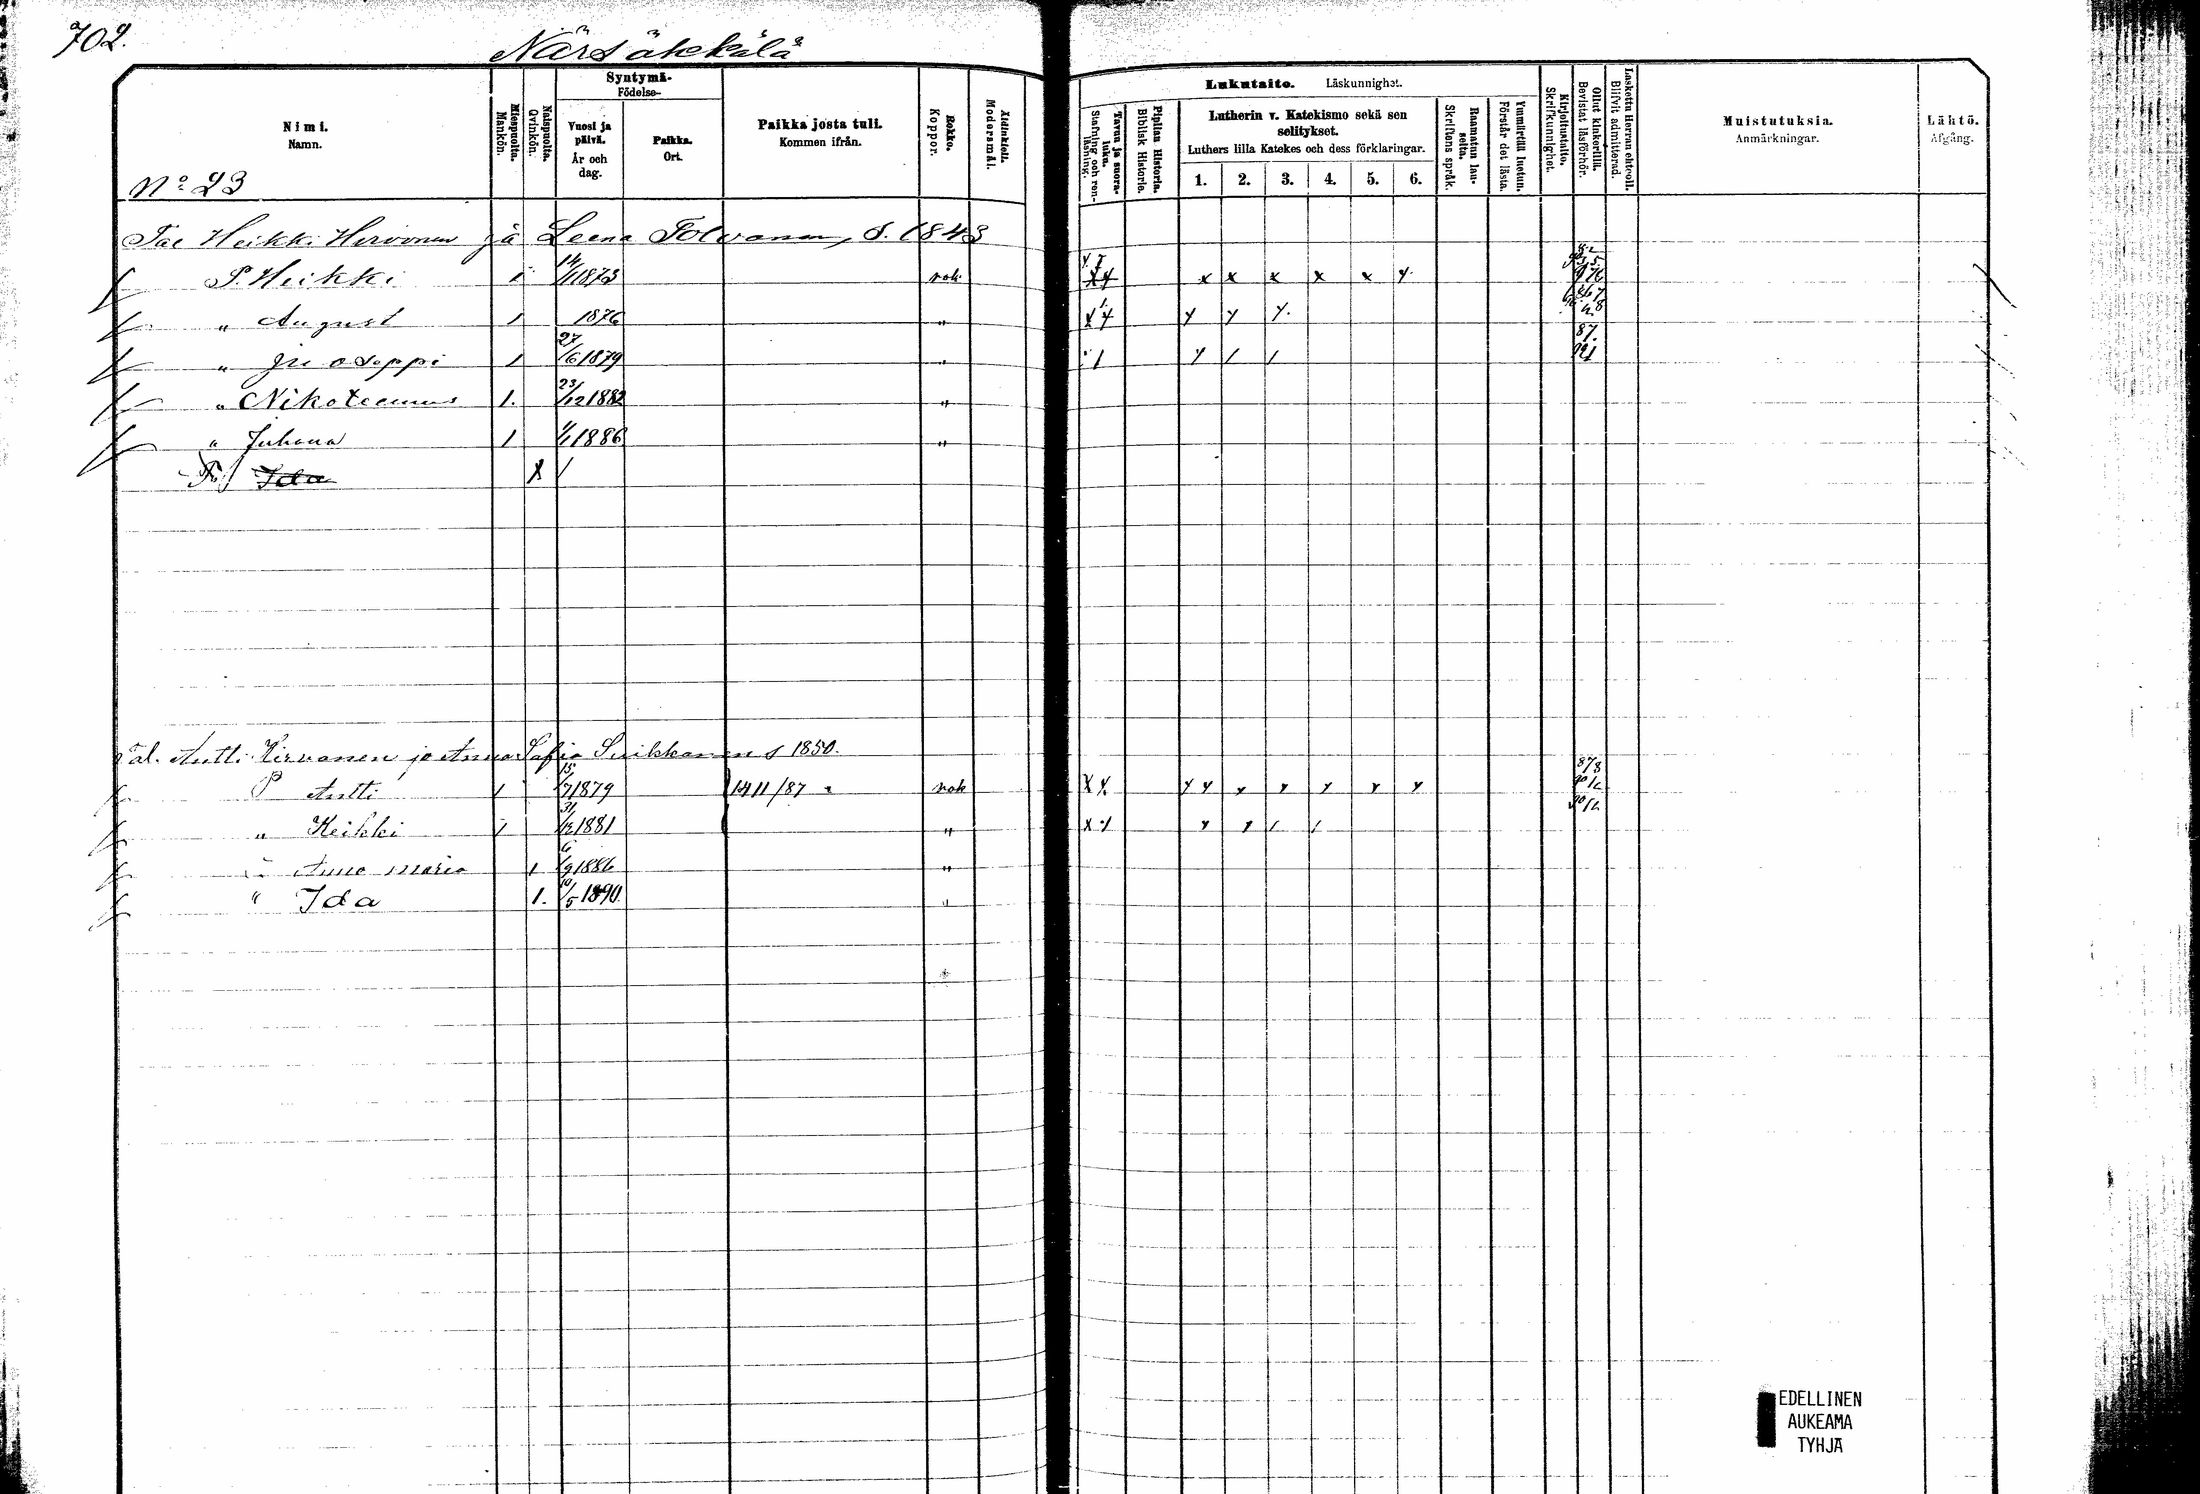 702.
Närsäkkälä
Nimi.
Namn.
Miespuolta.
Mankön.
Naispuolta.
Qvinkön.
Syntymä-
Födelse-
Vuosi ja päivä.
År och dag.
Paikka.
Ort.
Paikka josta tuli.
Kommen ifrån.
Rokko.
Koppor.
Äidinkieli.
Modersmål.
Tavan ja suora- luku.
Stafning och ren- läsning.
Piplian Historia.
Biblisk Historie.
Lukutaito. Läskunnighet.
Lutherin v. Katekismo sekä sen selitykset.
Luthers lilla Katekes och dess förklaringar.
1. 2. 3. 4. 5. 6.
Raamatun lau- selta.
Skriftens språk.
Ymmärtää luetun.
Förstår det lästa.
Kirjoitustaito.
Skrifkunnighet.
Ollut kinkerillä.
Bevistat läsförhör.
Laskettu Herran ehtool.
Blifvit admitterad.
Muistutuksia.
Anmärkningar.
Lähtö.
Afgång.
No 23
Tal Heikki Hirvonen ja Leena Tolvanen, S. 1843
P. Heikki 1 14/11 1873 rok x x x x x y
" August 1 1876 " y y y.
" Juoseppi 1 27/6 1879 " 1 y / /
" Nikoteemus 1. 23/12 1882 "
" Juhana 1 1/1 1886 "
Ida
Tal. Antti Hirvonen ja Anna Sofia Suikkanen s 1850.
P Antti 1 15/7 1879 1411/87 rok x y. y y y y y y y
" Heikki 1 31/12 1881 " x 1 y 1 / /
" Anna Maria 1 6/9 1886 "
" Ida 1. 10/5 1890 "
EDELLINEN
AUKEAMA
TYHJÄ